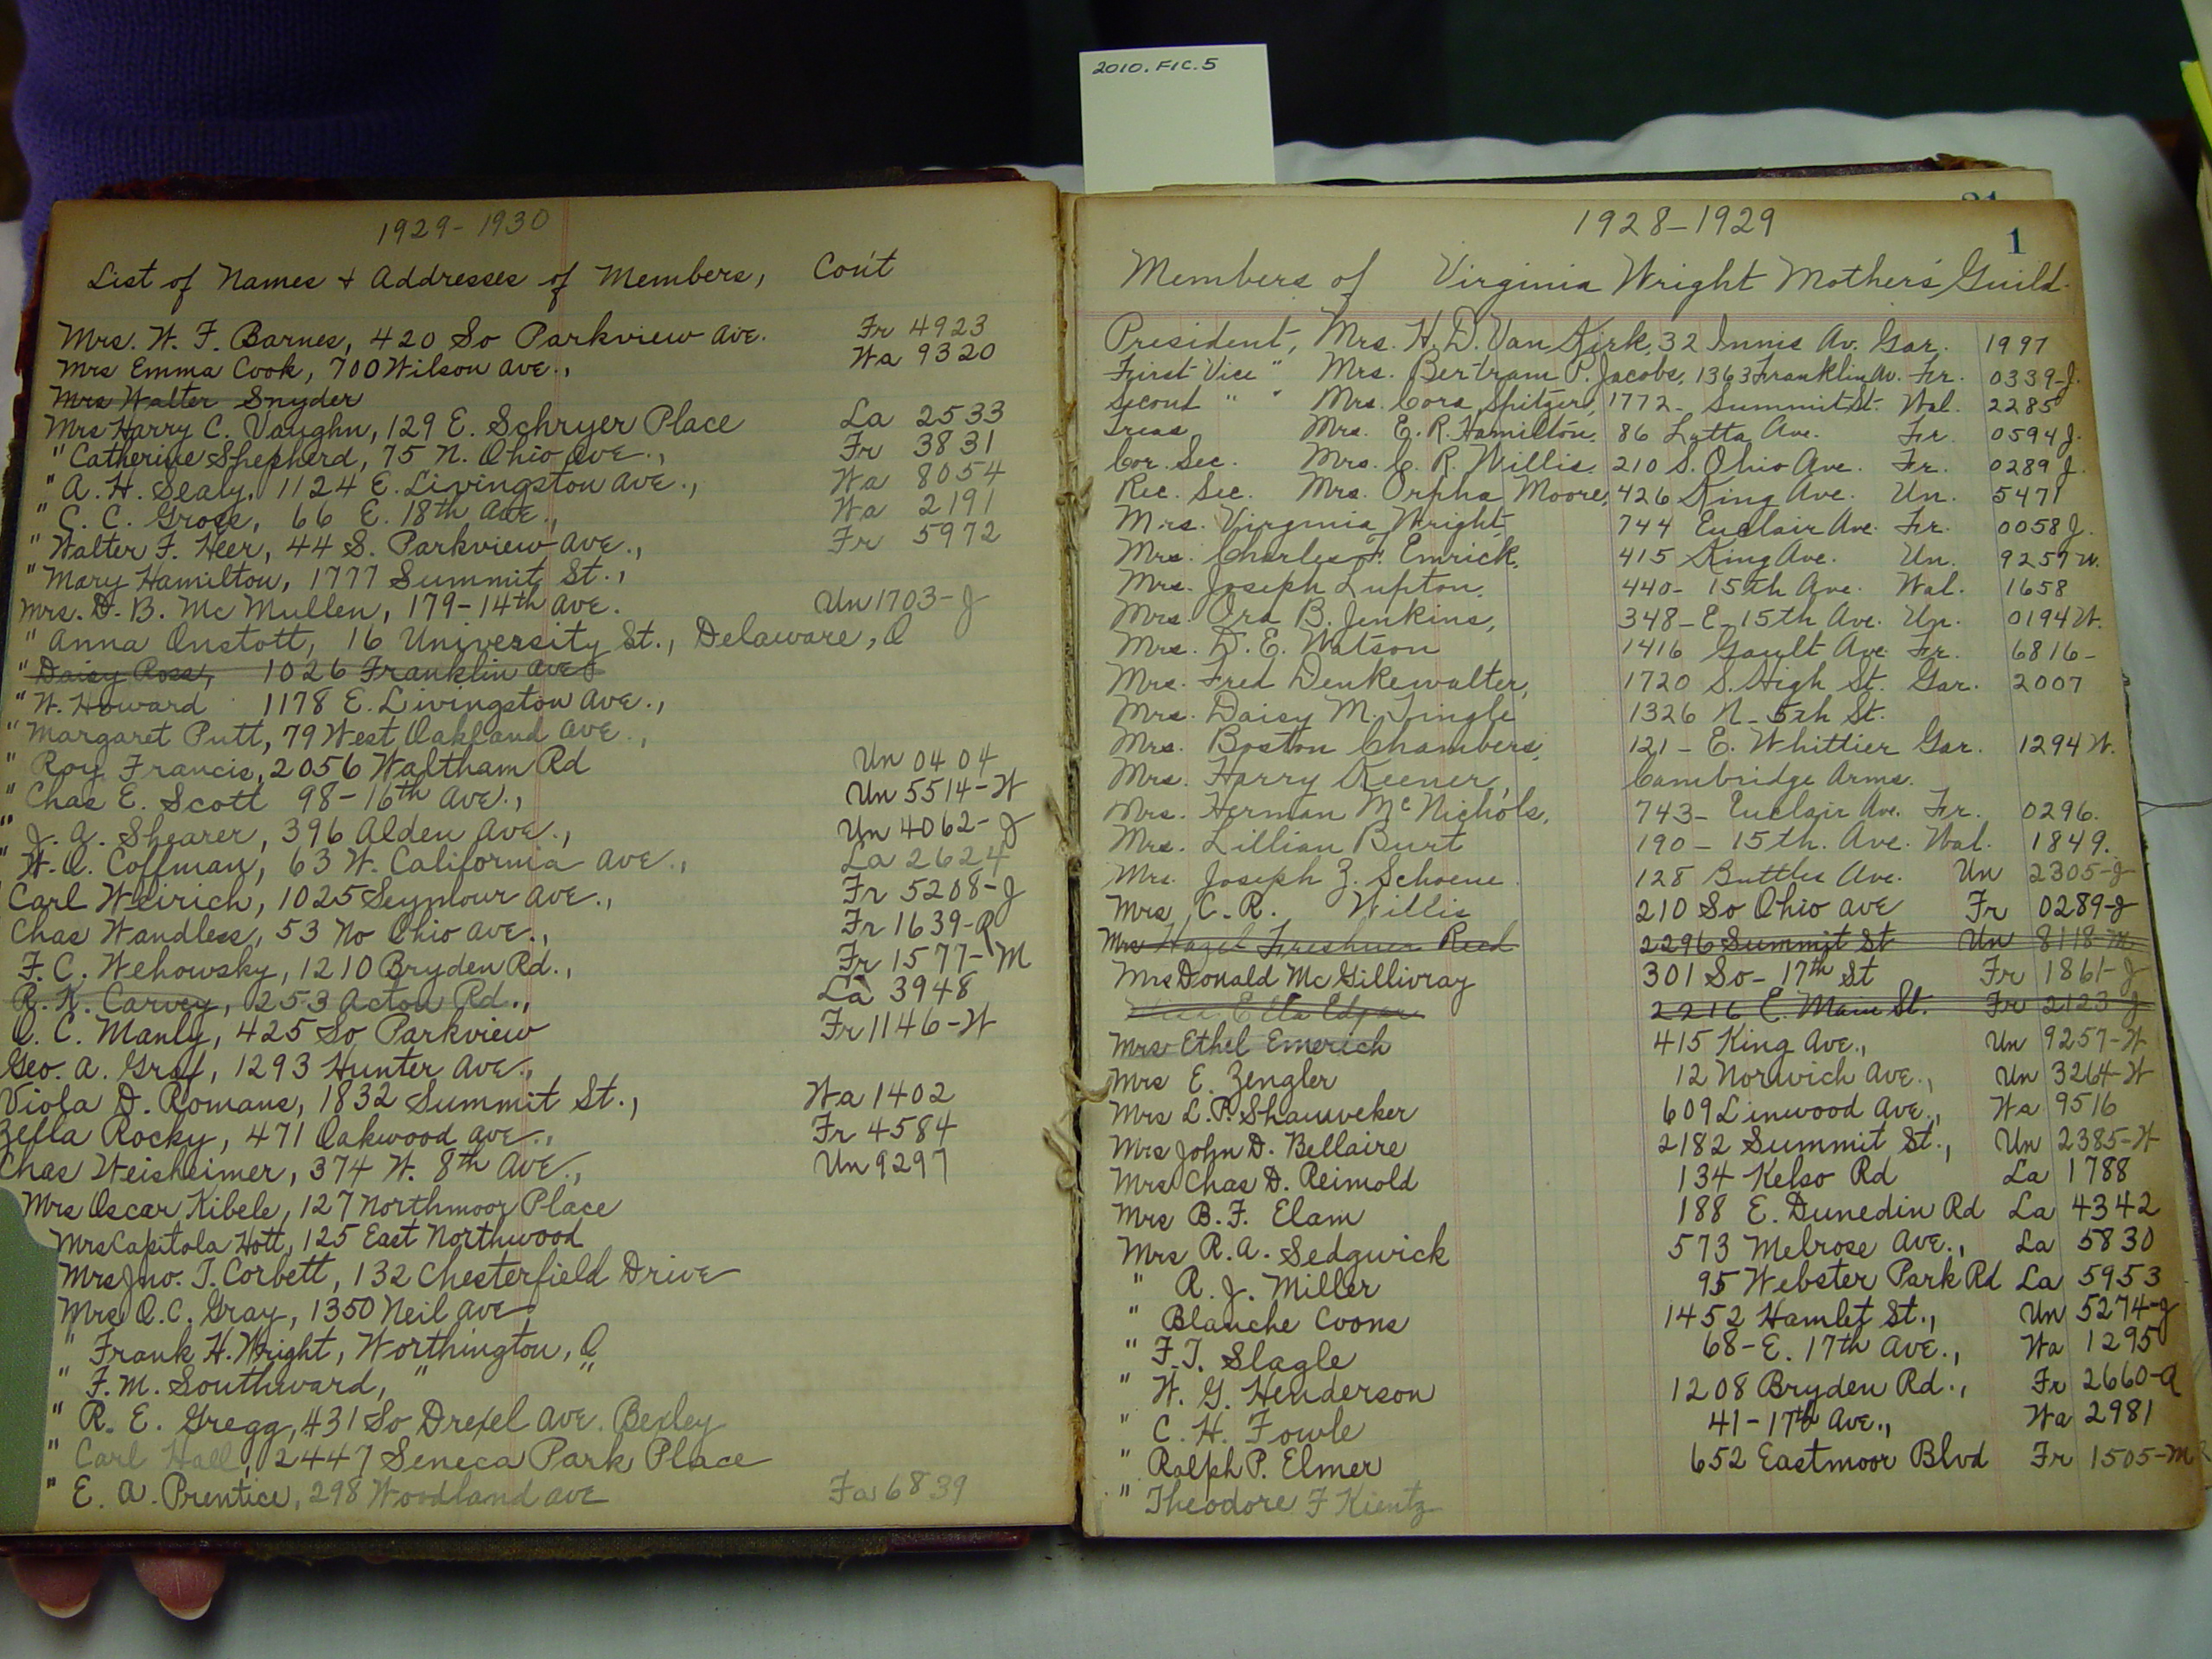 2010.FIC.5
1929-1930
List of Names + Addresses of Members, Con't
Mrs. W. F. Barnes, 420 So Parkview Ave. Fr 4923
Mrs Emma Cook, 700 Wilson Ave., Wa 9320
Mrs Walter Snyder
Mrs Harry C. Vaughn, 129 E. Schryer Place La 2533
" Catherine Shepherd, 75 N. Ohio Ave., Fr 3831
" A. H. Sealy, 1124 E. Livingston Ave., Wa 8054
" C. C. Grove, 66 E. 18th Ave., Wa 2191
" Walter F. Heer, 44 S. Parkview Ave., Fr 5972
" Mary Hamilton, 1777 Summit St.,
Mrs. D. B. Mc Mullen, 179-14th Ave. Un 1703-J
" Anna Onstott, 16 University St., Delaware, O
" Daisy Ross, 1026 Franklin Ave
" W. Howard 1178 E. Livingston Ave.,
" Margaret Putt, 79 West Oakland Ave.,
" Roy Francis, 2056 Waltham Rd Un 0404
" Chas E. Scott 98-16th Ave., Un 5514-W
" J. A. Shearer, 396 Alden Ave., Un 4062-J
" W. O. Coffman, 63 W. California Ave., La 2624
Carl Weirich, 1025 Seymour Ave., Fr 5208-J
Chas Wandless, 53 No Ohio Ave., Fr 1639-R
F. C. Wehowsky, 1210 Bryden Rd., Fr 1577-M
R. K. Carvey, 253 Acton Rd., La 3948
O. C. Manly, 425 So Parkview Fr 1146-W
Geo. A. Graf, 1293 Hunter Ave.,
Viola D. Romans, 1832 Summit St., Wa 1402
Zella Rocky, 471 Oakwood Ave., Fr 4584
Chas Weisheimer, 374 W. 8th Ave., Un 9297
Mrs Oscar Kibele, 127 Northmoor Place
Mrs Capitola Hott, 125 East Northwood
Mrs Jno. T. Corbett, 132 Chesterfield Drive
Mrs O. C. Gray, 1350 Neil Ave
" Frank H. Wright, Worthington, O
" F. M. Southward, " "
" R. E. Gregg, 431 So Drexel Ave. Bexley
" Carl Hall, 2447 Seneca Park Place
" E. A. Prentice, 298 Woodland Ave Fa 6839
1928-1929
1
Members of Virginia Wright Mothers' Guild.
President, Mrs. H. D. Van Kirk, 32 Innis Av. Gar. 1997
First Vice " Mrs. Bertram P. Jacobs, 1363 Franklin Av. Fr. 0339-J.
Second " " Mrs. Cora Spitzer, 1772- Summit St. Wal. 2285
Treas. Mrs. E. R. Hamilton, 86 Latta Ave. Fr. 0594 J.
Cor. Sec. Mrs. C. R. Willis, 210 S. Ohio Ave. Fr. 0289 J.
Rec. Sec. Mrs. Orpha Moore, 426 King Ave. Un. 5471
Mrs. Virginia Wright, 744 Euclair Ave. Fr. 0058 J.
Mrs. Charles F. Emrick, 415 King Ave. Un. 9257 W.
Mrs. Joseph Lupton, 440- 15th Ave. Wal. 1658
Mrs. Ora B. Jenkins, 348-E-15th Ave. Un. 0194 W.
Mrs. D. E. Watson 1416 Gault Ave Fr. 6816-
Mrs. Fred Denkewalter, 1720 S. High St. Gar. 2007
Mrs. Daisy M. Tingle 1326 N- 5th St.
Mrs. Boston Chambers, 121- E. Whittier Gar. 1294 W.
Mrs. Harry Keener, Cambridge Arms.
Mrs. Herman McNichols, 743- Euclair Ave. Fr. 0296.
Mrs. Lillian Burt 190- 15th. Ave. Wal. 1849.
Mrs. Joseph Z. Schoene. 128 Buttles Ave. Un 2305-J
Mrs C. R. Willis 210 So Ohio Ave Fr 0289-J
Mrs Hazel Freshner Reed 2296 Summit St Un 8118-M
Mrs Donald McGillivray 301 So- 17th St Fr 1861-J
Ella Edgar 2216 E. Main St. Fr 2123 J
Mrs Ethel Emerich 415 King Ave., Un 9257-W
Mrs E. Zengler 12 Norwich Ave., Un 3264-W
Mrs L. P. Shauweker 609 Linwood Ave., Wa 9516
Mrs John D. Bellaire 2182 Summit St., Un 2385-W
Mrs Chas D. Reimold 134 Kelso Rd La 1788
Mrs B. F. Elam 188 E. Dunedin Rd La 4342
Mrs R. A. Sedgwick 573 Melrose Ave., La 5830
" R. J. Miller 95 Webster Park Rd La 5953
" Blanche Coons 1452 Hamlet St., Un 5274-J
" F. T. Slagle 68-E. 17th Ave., Wa 1295
" W. G. Henderson 1208 Bryden Rd., Fr 2660-R
" C. H. Fowle 41-17th Ave., Wa 2981
" Ralph P. Elmer 652 Eastmoor Blvd Fr 1505-M
" Theodore F Kientz